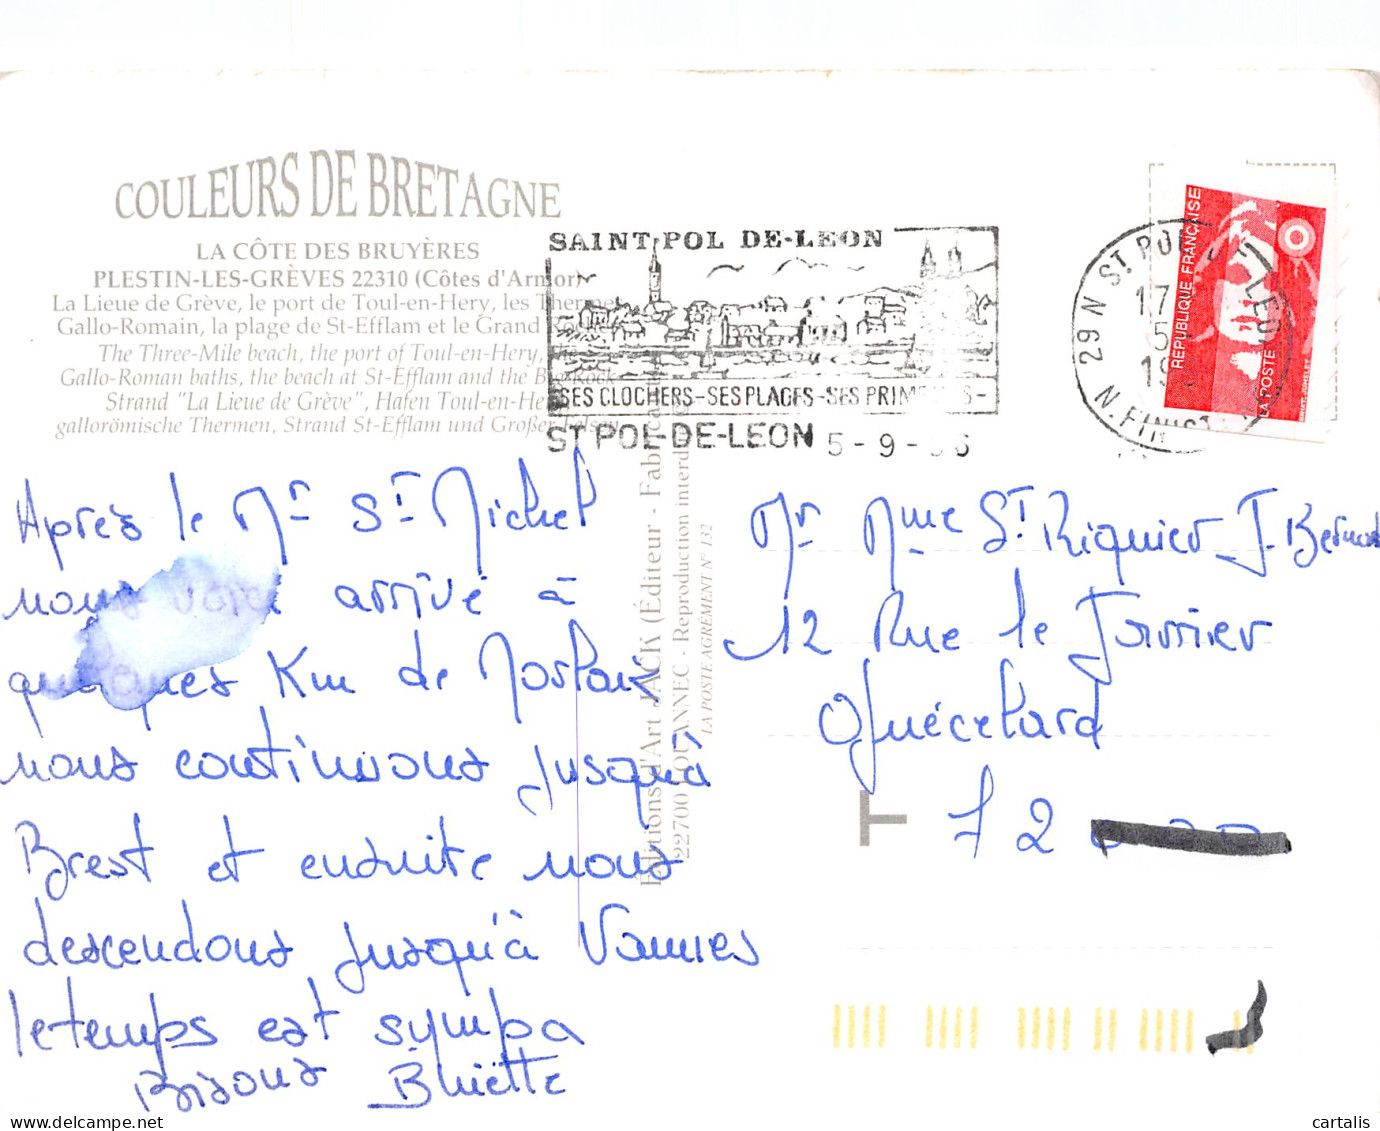 COULEURS DE BRETAGNE
LA CÔTE DES BRUYÈRES
PLESTIN-LES-GRÈVES 22310 (Côtes d'Armor)
La Lieue de Grève, le port de Toul-en-Hery, les Thermes
Gallo-Romain, la plage de St-Efflam et le Grand
The Three-Mile beach, the port of Toul-en-Hery, the
Gallo-Roman baths, the beach at St-Efflam and the Big Rock
Strand "La Lieue de Grève", Hafen Toul-en-Hery
gallorömische Thermen, Strand St-Efflam und Großer Felsen
SAINT POL DE-LEON
SES CLOCHERS-SES PLAGES-SES PRIMEURS-
ST POL-DE-LEON 5-9- 6
29 N ST POL LEON
17
5
19
N. FINIST
RÉPUBLIQUE FRANÇAISE
LA POSTE
Après le Mt St Michel
nous voici arrivé à
quelques Km de Morlaix
nous continuons jusqu'à
Brest et ensuite nous
descendons jusqu'à Vannes
le temps est sympa
Bisous
Éditions d'Art JACK (Éditeur - Fabricant
22700 LOUANNEC - Reproduction interdite
LA POSTE AGREMENT N° 132
Mr Mme St Riquier - J. Bernard
12 Rue le
72
T
cartalis